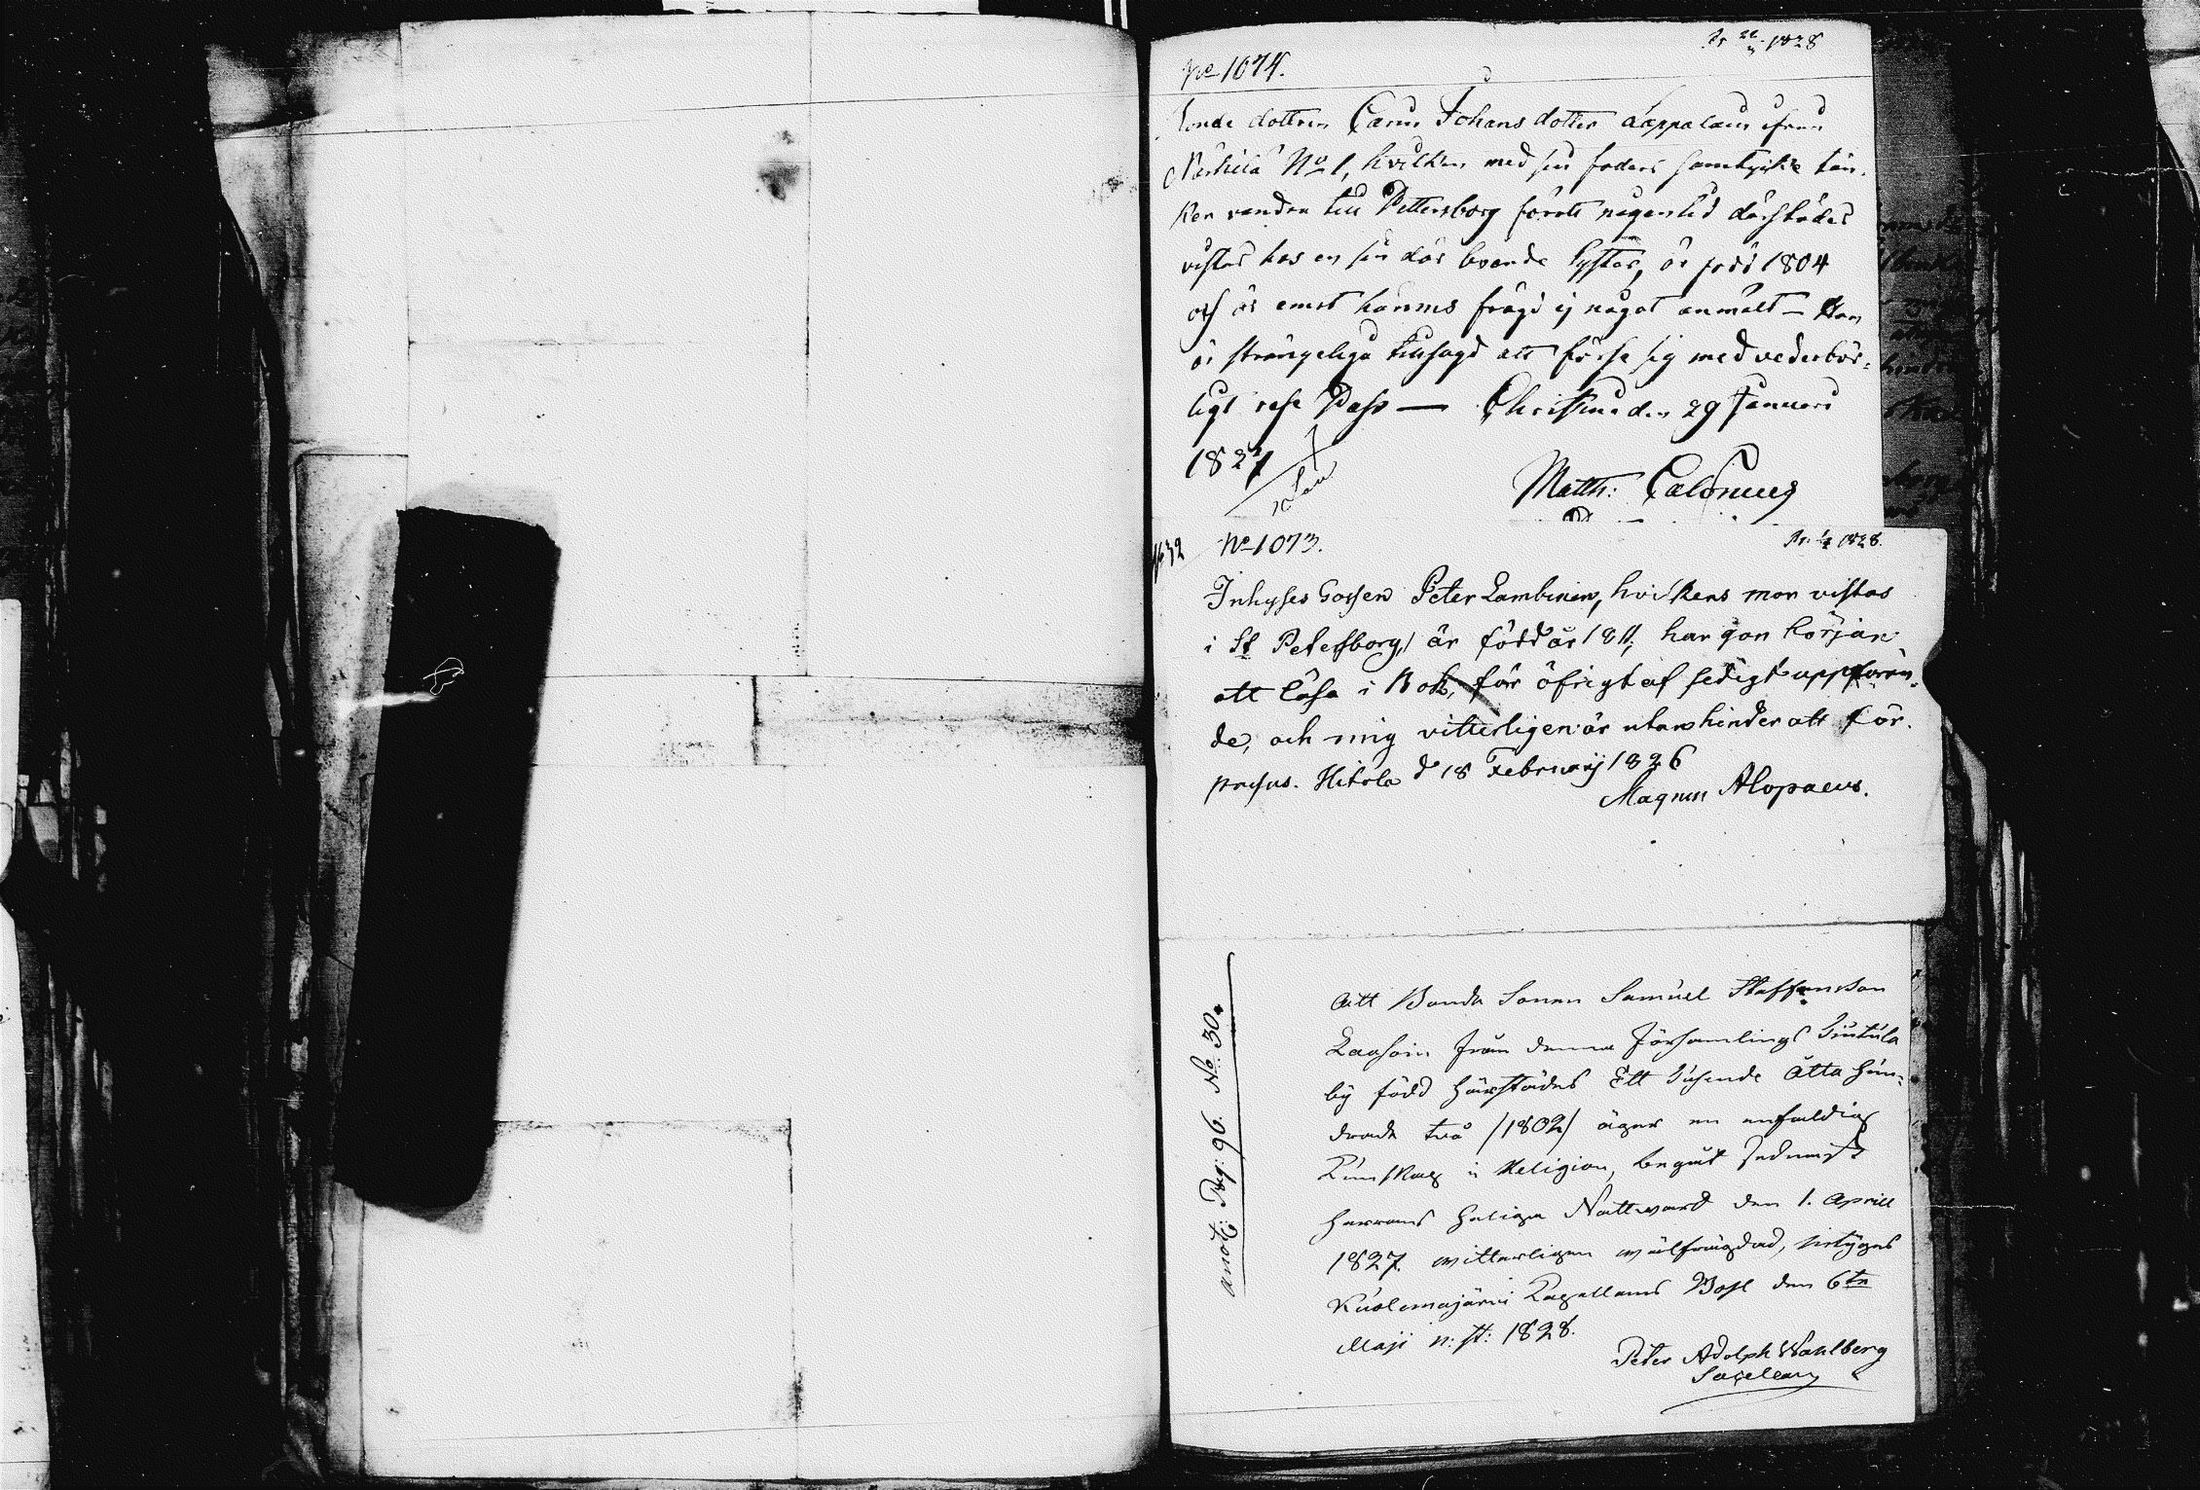 No 1074.
1828
Bonde dottren Carin Johansdotter Lappalain ifrån
No 1, hvilken med sin faders samtycke tän-
ker vandra till Pettersborg förate någon tid därstädes
vistas hos en sin där boende Syster, är född 1804
och är emot hännes frägd ej något anmält — Hon
är strängeliga tillsagd att förse sig med vederbör-
ligt rese Pass — Christina den 29 Januarii
1827
Matth: Calonius
No 1073.
1828.
Inhyses Gossen Peter Lambinen, hvilkens mor vistas
i St Petersborg, är född år 1811, har gon börjàn
att läsa i Bok, för öfrigt af sedigt uppföran-
de, och mig vitterligen är utan hinder att för-
passas. Hitola d 18 Februarij 1826
Magnus Alopaeus.
annot: Pag: 96. No: 30.
Att Bonde Sonen Samuel Staffansson
från denna Församlings
by född härstädes Ett tusende Åtta hun-
drade två /1802/ äger en enfaldig
Kunskap i Religion, begått sednast
Herrans Heliga Nattvard den 1. Aprill
1827. witterligen wälfrägdad, betygas
Kuolemajärvi Capellans Bohl den 6te
Maji n: st: 1828.
Peter Adolph Wahlberg
Sacellan